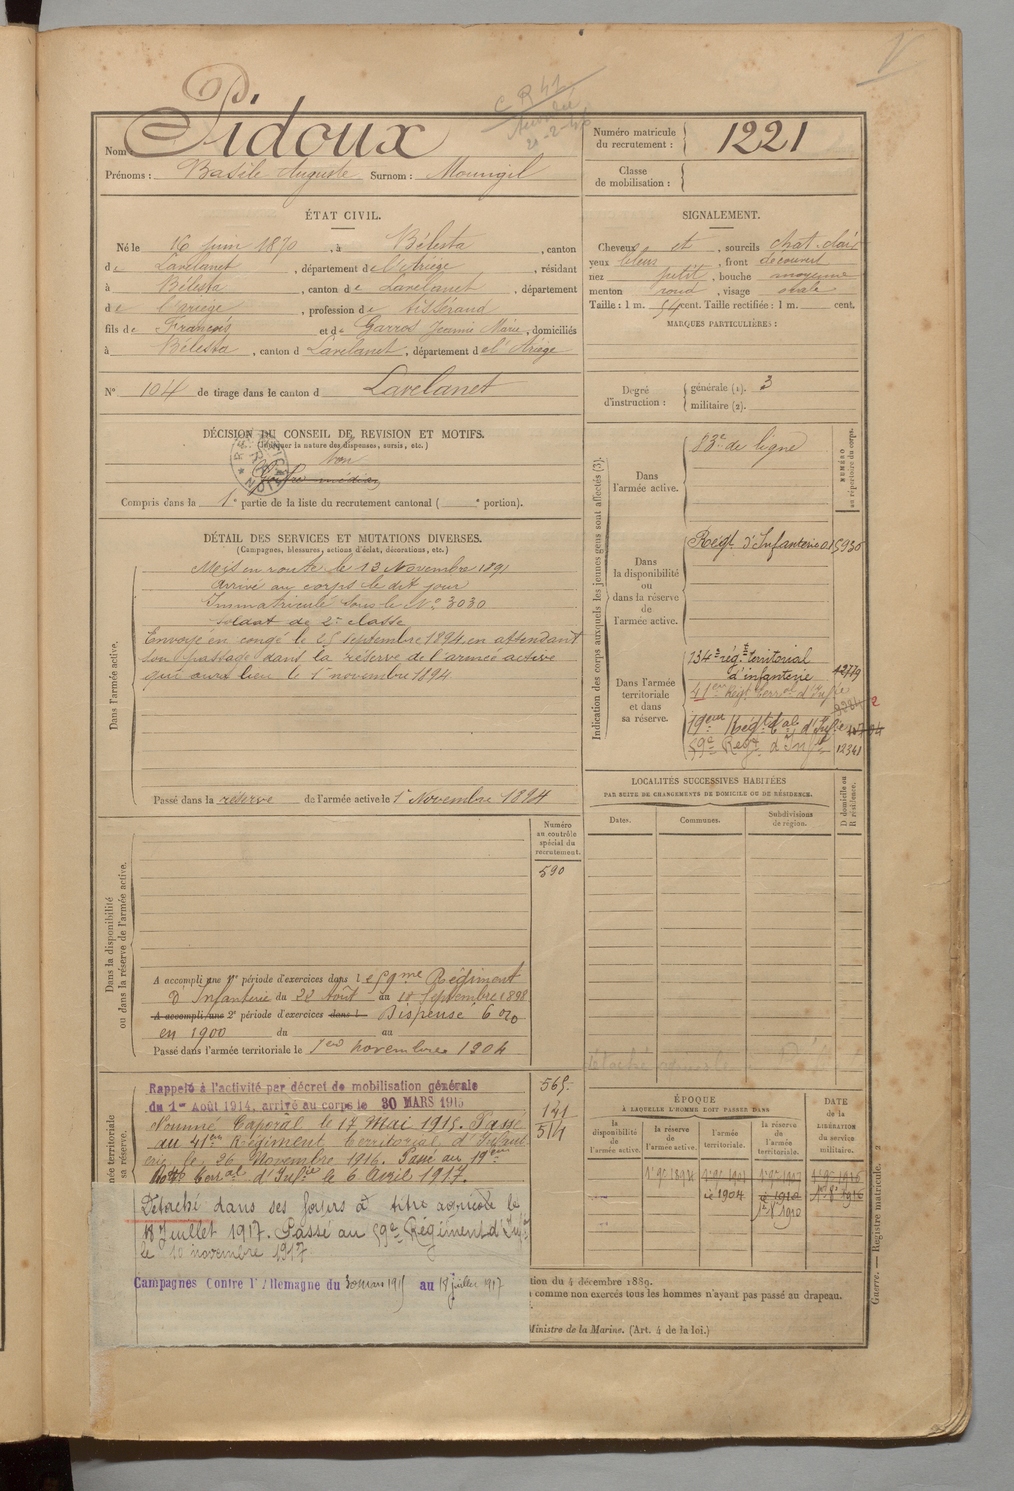 Nom Pidoux
Prénoms : Basile Auguste Surnom : Moungil
Numéro matricule du recrutement : 1221
Classe de mobilisation :
ÉTAT CIVIL.
Né le 16 juin 1870, à Bélesta, canton
de Lavelanet, département de l'Ariège, résidant
à Bélesta, canton de Lavelanet, département
de l'ariège, profession de tisserand
fils de François et de Garros Jeanne Marie, domiciliés
à Bélesta, canton d Lavelanet, département de l'Ariège
N° 104 de tirage dans le canton d Lavelanet
SIGNALEMENT.
Cheveux et, sourcils chat. clair
yeux bleus, front découvert
nez petit, bouche moyenne
menton rond, visage ovale
Taille : 1 m. 54 cent. Taille rectifiée : 1 m. cent.
MARQUES PARTICULIÈRES :
Degré d'instruction :
générale (1). 3
militaire (2).
DÉCISION DU CONSEIL DE REVISION ET MOTIFS.
(Indiquer la nature des dispenses, sursis, etc.)
bon
Compris dans la 1e partie de la liste du recrutement cantonal ( e portion).
DÉTAIL DES SERVICES ET MUTATIONS DIVERSES.
(Campagnes, blessures, actions d'éclat, décorations, etc.)
Dans l'armée active.
Mis en route le 13 Novembre 1891
Arrivé au corps le dit jour
Immatriculé sous le N° 3030
soldat de 2e classe
Envoyé en congé le 25 septembre 1894 en attendant
son passage dans la réserve de l'armée active
qui aura lieu le 1er novembre 1894
Passé dans la réserve de l'armée active le 1er Novembre 1894
Indication des corps auxquels les jeunes gens sont affectés (3).
NUMÉRO au répertoire du corps.
Dans l'armée active.
83e de ligne
Dans la disponibilité ou dans la réserve de l'armée active.
Régt d'Infanterie 015930
Dans l'armée territoriale et dans sa réserve.
134e rég. territorial
d'infanterie 12779
41eme Régt Terral d'Infie
19eme Régt tal d'Infie
59e Regt d'Infie 12341
LOCALITÉS SUCCESSIVES HABITÉES
PAR SUITE DE CHANGEMENTS DE DOMICILE OU DE RÉSIDENCE.
D domicile ou R résidence.
Dates.
Communes.
Subdivisions de région.
Dans la disponibilité ou dans la réserve de l'armée active.
Numéro au contrôle spécial du recrutement.
590
A accompli une 1re période d'exercices dans le 59me Régiment
d'Infanterie du 22 Août au 18 Septembre 1898
A accompli une 2e période d'exercices dans l Dispensé 6 0/0
en 1900 du au
Passé dans l'armée territoriale le 1er novembre 1904
Rappelé à l'activité par décret de mobilisation générale
du 1er Août 1914, arrivé au corps le 30 MARS 1915
Nommé Caporal le 17 Mai 1915. Passé
au 41me Régiment Territorial d'Infant-
erie le 26 Novembre 1916. Passé au 19eme
Terral d'Infie le 6 Avril 1917.
Détaché dans ses foyers à titre agricole le
18 Juillet 1917. Passé au 59e Régiment d'Infie
le 10 novembre 1917
Campagnes Contre l'Allemagne du 30 mars 1915 au 18 juillet 1917
565
121
514
ÉPOQUE
À LAQUELLE L'HOMME DOIT PASSER DANS
la disponibilité de l'armée active.
la réserve de l'armée active.
l'armée territoriale.
la réserve de l'armée territoriale.
DATE de la LIBÉRATION du service militaire.
1er 9e 1894
le 1904
1er N 1910
ition du 4 décembre 1889.
comme non exercés tous les hommes n'ayant pas passé au drapeau.
Ministre de la Marine. (Art. 4 de la loi.)
Guerre. — Registre matricule. 2